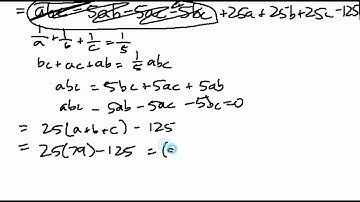 = abc - 5ab - 5ac - 5bc + 25a + 25b + 25c - 125
1/a + 1/b + 1/c = 1/5
bc + ac + ab = 1/5 abc
abc = 5bc + 5ac + 5ab
abc - 5ab - 5ac - 5bc = 0
= 25(a+b+c) - 125
= 25(79) - 125 = (